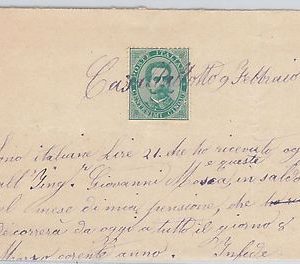 Cas Otto 9 Febbraio
POSTE ITALIANE
CENTESIMI CINQUE
ono italiane Lire 21. che ho ricevuto og
all' Ing.r Giovanni Mosca, in sald
e queste
el mese di mia pensione, che
decorrerà da oggi a tutto il giorno 8
Marzo corente anno. Infede